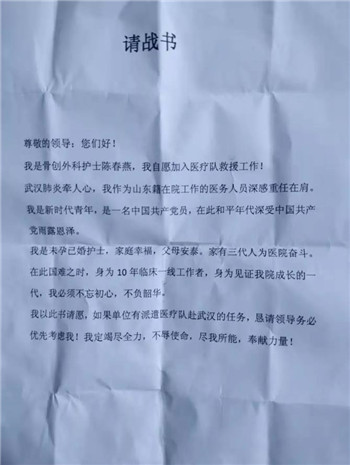 请战书
尊敬的领导：您们好！
我是骨创外科护士陈春燕，我自愿加入医疗队救援工作！
武汉肺炎牵人心，我作为山东籍在院工作的医务人员深感重任在肩。
我是新时代青年，是一名中国共产党员，在此和平年代深受中国共产
党雨露恩泽。
我是未孕已婚护士，家庭幸福，父母安泰。家有三代人为医院奋斗。
在此国难之时，身为 10 年临床一线工作者，身为见证我院成长的一
代，我必须不忘初心，不负韶华。
我以此书请愿，如果单位有派遣医疗队赴武汉的任务，恳请领导务必
优先考虑我！我定竭尽全力，不辱使命，尽我所能，奉献力量！